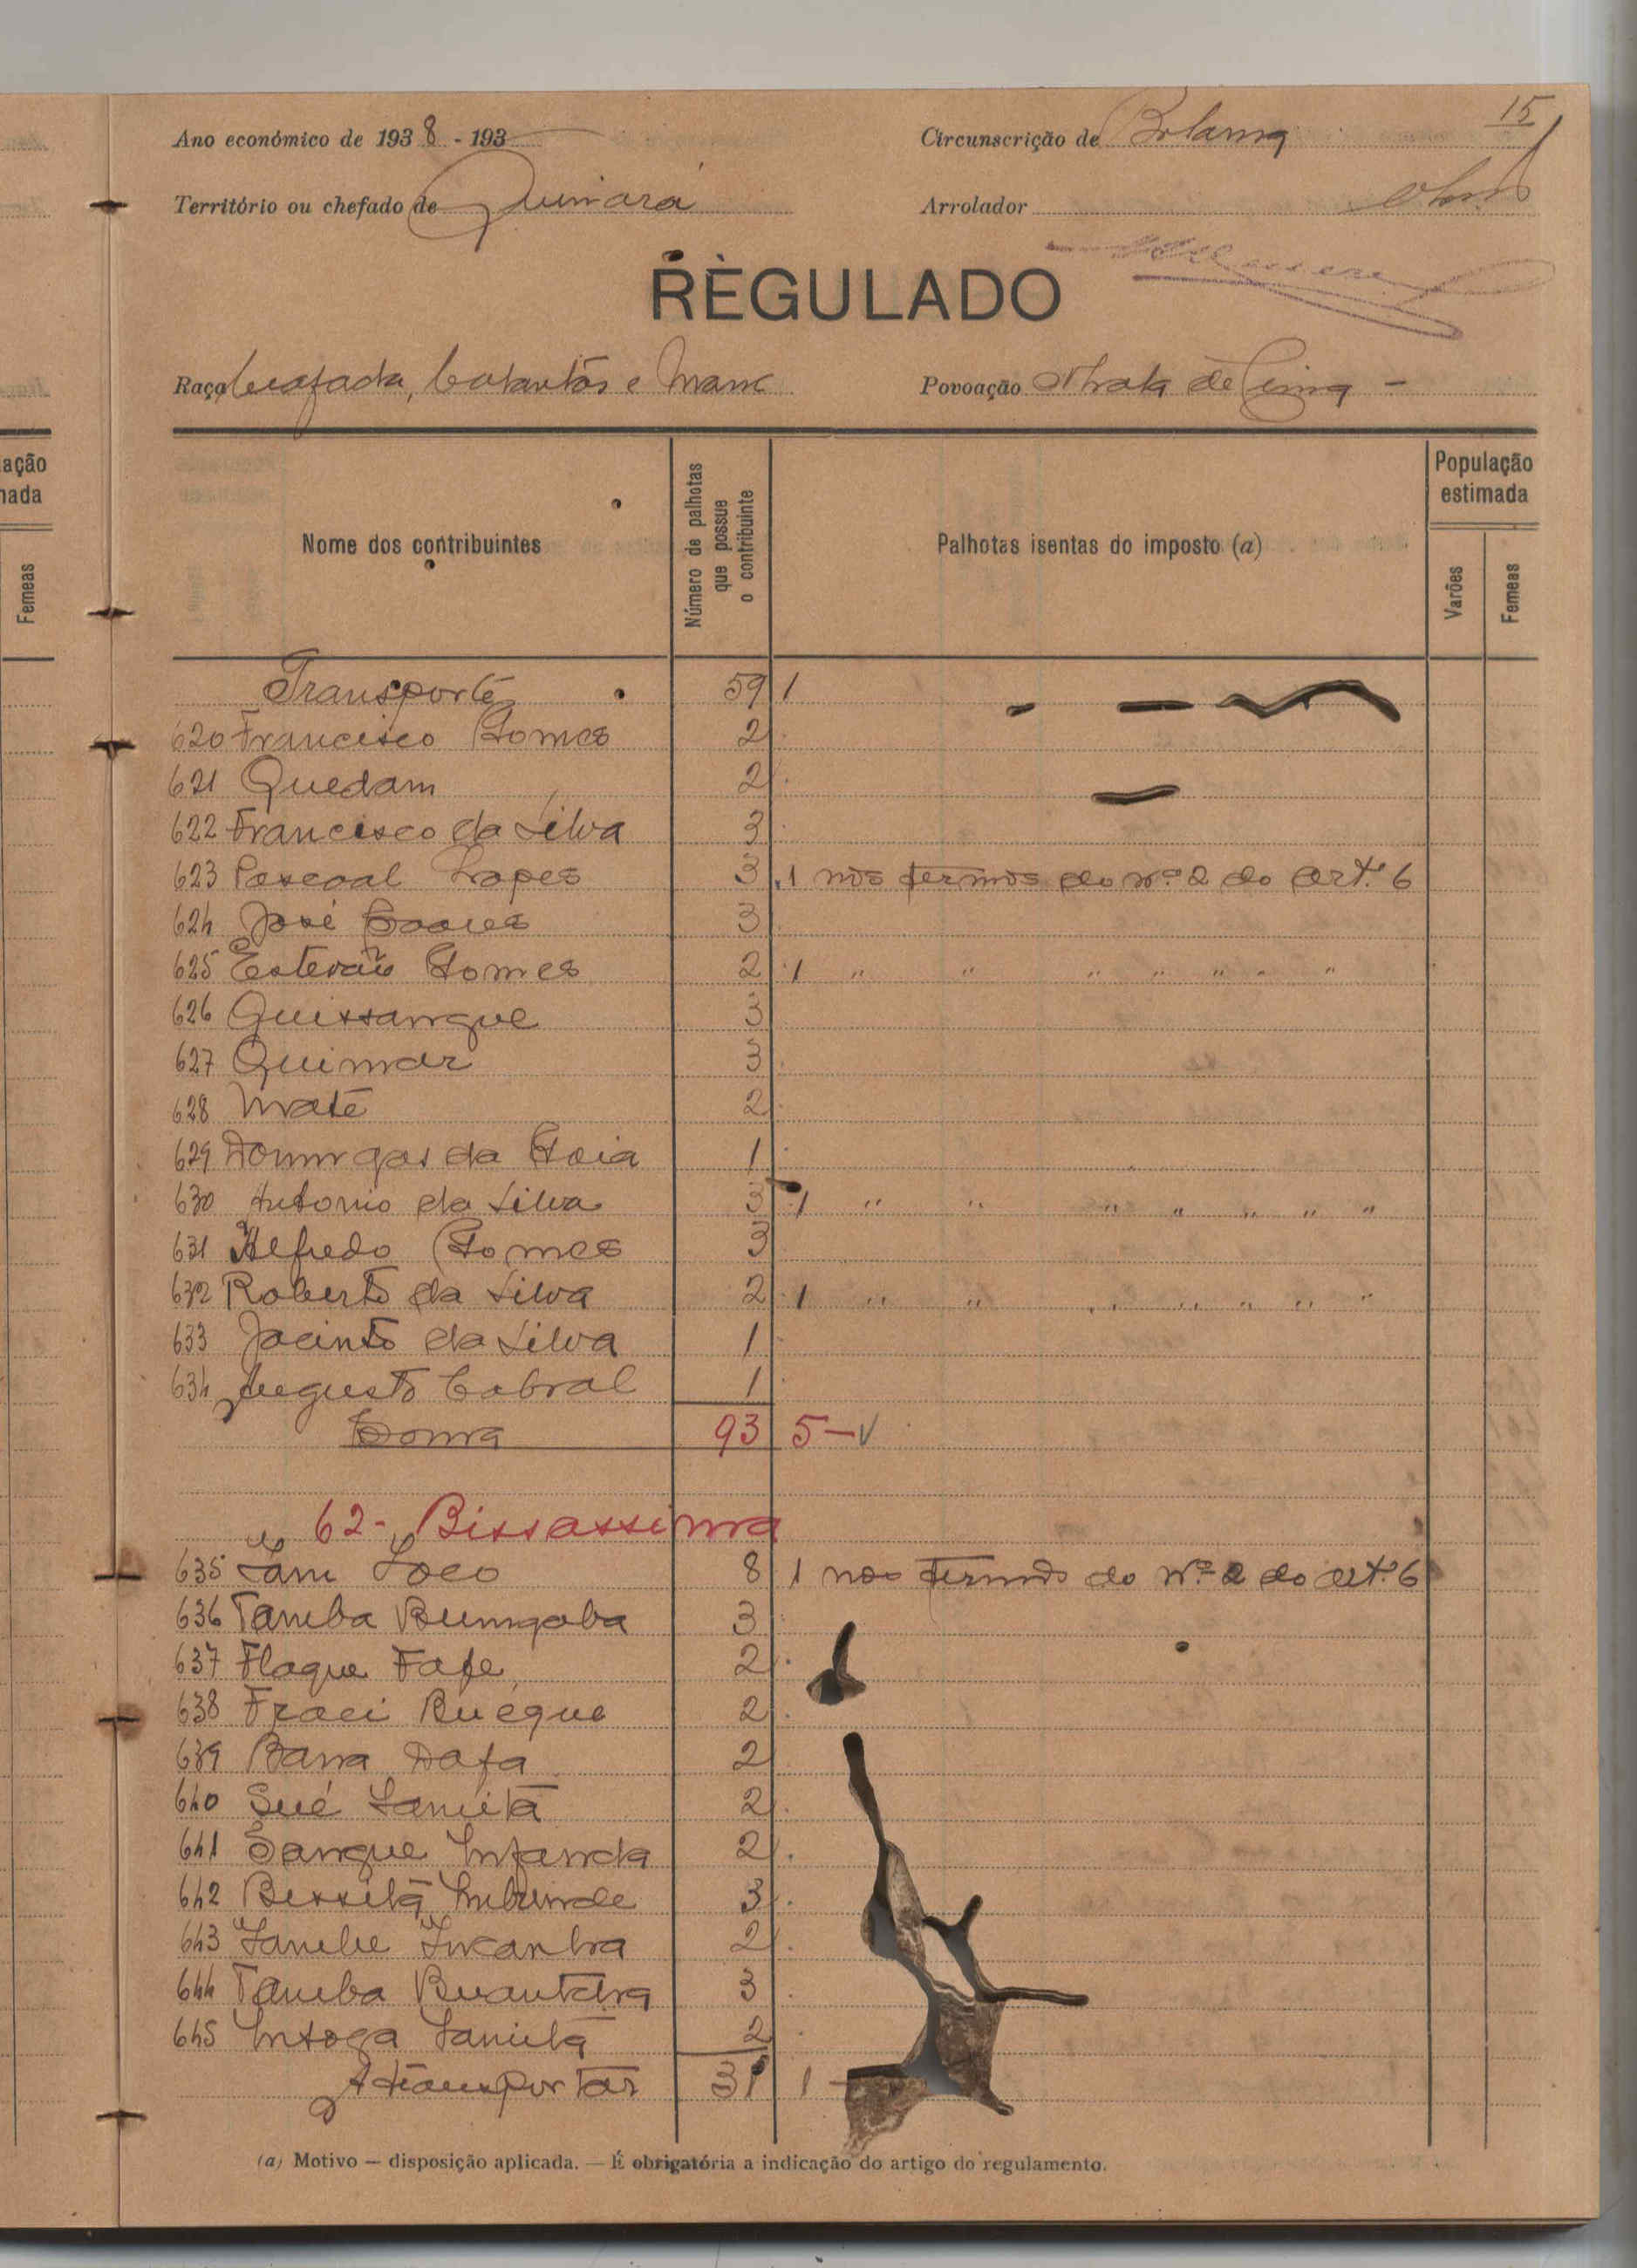 15
Ano económico de 1938 - 193
Circunscrição de Bolama
Território ou chefado de Quinará
Arrolador
REGULADO
Raça Beafada, Balantas e Manc
Povoação de Cima -
ação
nada
Femeas
Nome dos contribuintes
Número de palhotas que possue o contribuinte
Palhotas isentas do imposto (a)
População estimada
Varões
Femeas
Transporte 59 1
620 Francisco Gomes 2
621 Quedam 2
622 Francisco da Silva 3
623 Pascoal Lopes 3 1 nos termos do nº 2 do artº 6
624 José Soares 3
625 Estevão Gomes 2 1 " " " " " "
626 Quissangue 3
627 Quimar 3
628 Maté 2
629 Domingas da Goia 1
630 Antonio da Silva 3 1 " " " " " " "
631 Alfredo Gomes 3
632 Roberto da Silva 2 1 " " " " " " "
633 Jacinto da Silva 1
634 Augusto Cabral 1
Soma 93 5 -
62 - Bissassema
635 Lam Soco 8 1 nos termos do nº 2 do artº 6
636 Tamba Bungaba 3
637 Flaque Fafe 2
638 Fraci Buéque 2
639 Bana Dafa 2
640 Sué Lamitã 2
641 Sangue Infanda 2
642 Bessitã Imbunde 3
643 2
644 Tamba Buantchna 3
645 Intoga Lamitã 2
A transportar 31 1 -
(a) Motivo — disposição aplicada. — É obrigatória a indicação do artigo do regulamento.